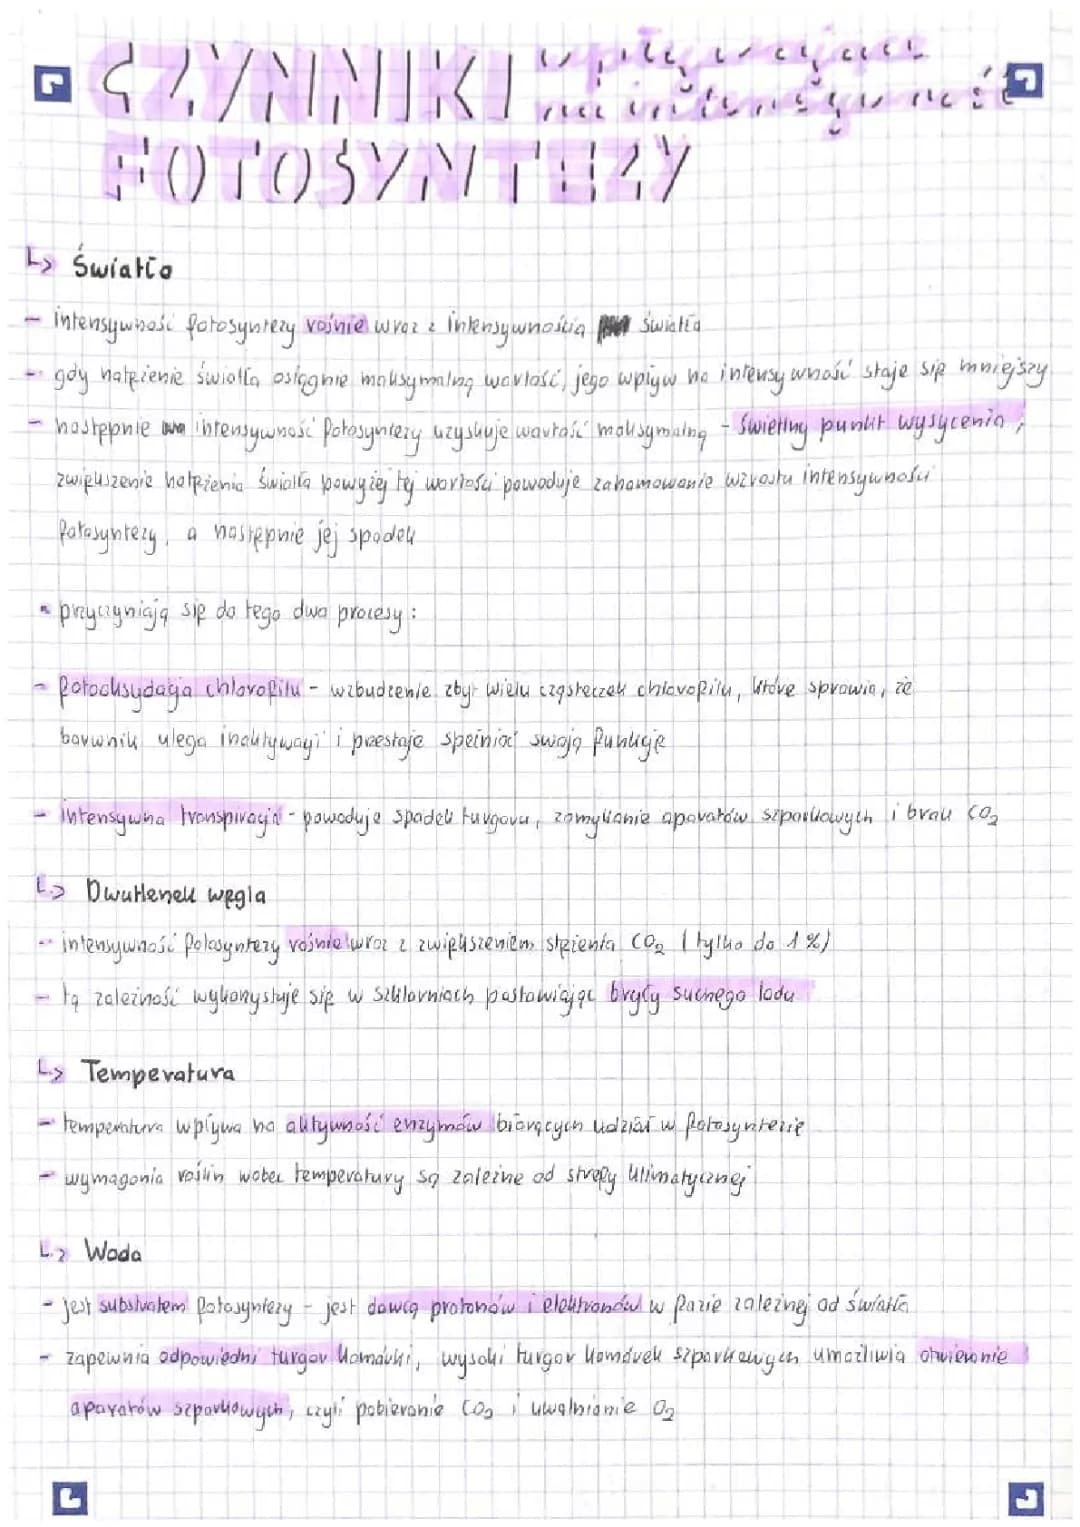 CZYNNIKI wpływające
na intensywność
FOTOSYNTEZY
↳ Światło
- intensywność fotosyntezy rośnie wraz z intensywnością światła
- gdy natężenie światła osiągnie maksymalną wartość, jego wpływ na intensywność staje się mniejszy
- następnie intensywność fotosyntezy uzyskuje wartość maksymalną - świetlny punkt wysycenia,
zwiększenie natężenia światła powyżej tej wartości powoduje zahamowanie wzrostu intensywności
fotosyntezy, a następnie jej spadek
• przyczyniają się do tego dwa procesy:
- fotooksydacja chlorofilu - wzbudzenie zbyt wielu cząsteczek chlorofilu, które sprawia, że
barwnik ulega inaktywacji i przestaje spełniać swoją funkcję
- intensywna transpiracja - powoduje spadek turgoru, zamykanie aparatów szparkowych i brak CO₂
↳ Dwutlenek węgla
- intensywność fotosyntezy rośnie wraz z zwiększeniem stężenia CO₂ (tylko do 1%)
- tą zależność wykorzystuje się w szklarniach postawiając bryły suchego lodu
↳ Temperatura
- temperatura wpływa na aktywność enzymów biorących udział w fotosyntezie
- wymagania roślin wobec temperatury są zależne od strefy klimatycznej
↳ Woda
- jest substratem fotosyntezy - jest dawcą protonów i elektronów w fazie zależnej od światła
- zapewnia odpowiedni turgor komórki, wysoki turgor komórek szparkowych umożliwia otwieranie
aparatów szparkowych, czyli pobieranie CO₂ i uwalnianie O₂